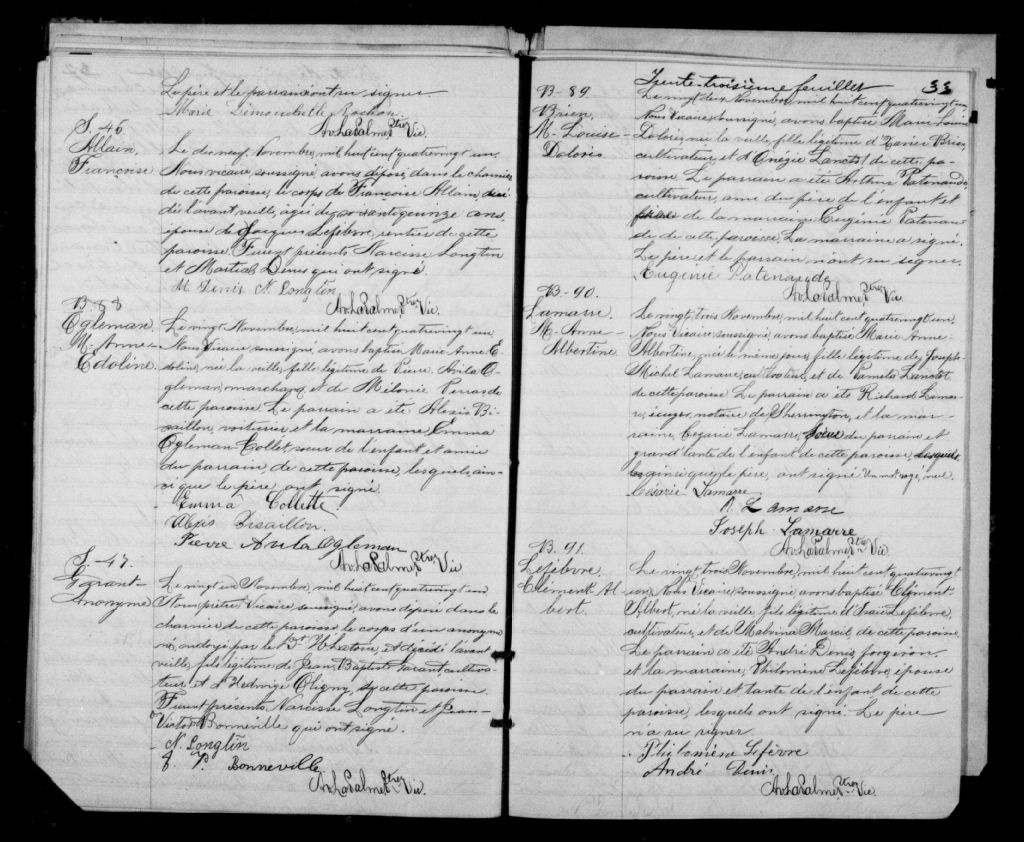 Le père et le parrain ont su signer
Marie Démouchelle Rochon
S. 46
Allain,
Françoise
Le dix neuf, Novembre, mil huit cent quatrevingt un,
Nous vicaire soussigné avons déposé, dans le charnier
de cette paroisse, le corps de Françoise Allain,
dée l'avant veille, agée de soixante quinze ans,
épouse de Jacques Lefebvre, rentier de cette
paroisse. Furent présents Narcisse Longtin
et Martial Denis qui ont signé.
M. Denis N. Longtin
Ptre Vic.
B-88
Ogleman
M. Anne-
Edoline
Le vingt Novembre, mil huit cent quatrevingt un
Nous Vicaire soussigné, avons baptisé Marie Anne E-
doline, née la veille, fille légitime de Pierre Avila O-
gleman, marchand, et de Mélonie Perras de
cette paroisse. Le parrain a été Alexis Bi-
saillon, voiturier et la marraine Emma
Ogleman Collet, soeur de l'enfant et amie
du parrain, de cette paroisse, lesquels, ain-
si que le père, ont signé.
Emma Collette
Alexis Bisaillon.
Pierre Avila Ogleman
Ptre Vic
S. 47.
Garant-
Anonyme
Le vingt un Novembre, mil huit cent quatrevingt un
Nous prêtre Vicaire soussigné, avons déposé dans le
charnier de cette paroisse le corps d'un anonyme
né, ondoyé par le Dr. et décédé l'avant
veille, fils légitime de Jean Baptiste Garant, cultiva-
teur, et d'Hedwige Oligny, de cette paroisse.
Furent présents Narcisse Longtin et Jean-
Victor Bonneville qui ont signé.
N. Longtin
J. V. Bonneville
Ptre Vic.
Trente-troisième feuillet 33
B-89
Brien,
M. Louise-
Dolorès
Le vingt deux Novembre, mil huit cent quatrevingt un
Nous Vicaire soussigné, avons baptisé Marie Louise
Dolorès, née la veille, fille légitime d'Xavier Brien,
cultivateur et d'Onézie Lanctôt de cette pa-
roisse. Le parrain a été Arthur Patenaude
cultivateur, ami du père de l'enfant et
de la marraine, Eugénie Patenau
de de cette paroisse. La marraine a signé.
Le père et le parrain n'ont su signer.
Eugénie Patenaude
Ptre Vic.
B-90.
Lamarre
M. Anne-
Albertine
Le vingt, trois Novembre, mil huit cent quatrevingt un,
Nous Vicaire soussigné, avons baptisé Marie Anne
Albertine, née le même jour, fille légitime de Joseph
Michel Lamarre, cultivateur, et de Pamila Lanctôt
de cette paroisse. Le parrain a été Richard Lamar-
re, écuyer, notaire de Sherrington, et la mar-
raine, Césarie Lamarre, soeur du parrain et
grand'tante de l'enfant de cette paroisse, lesquels
ainsi que le père, ont signé Un mot rayé, nul.
Césarie Lamarre
R. Lamarre
Joseph Lamarre
Ptre Vic
B. 91.
Lefebvre
Clément Al-
bert.
Le vingt trois Novembre, mil huit cent quatrevingt
un, Nous Vicaire, soussigné, avons baptisé Clément
Albert, né la veille, fils légitime d'Isaïe Lefebvre,
cultivateur, et de Malvina Marcil, de cette paroisse.
Le parrain a été André Denis, forgeron,
et la marraine, Philomène Lefebvre, épouse
du parrain et tante de l'enfant, de cette
paroisse, lesquels ont signé. Le père
n'a su signer
Philomène Lefèvre
André Denis
Ptre Vic.